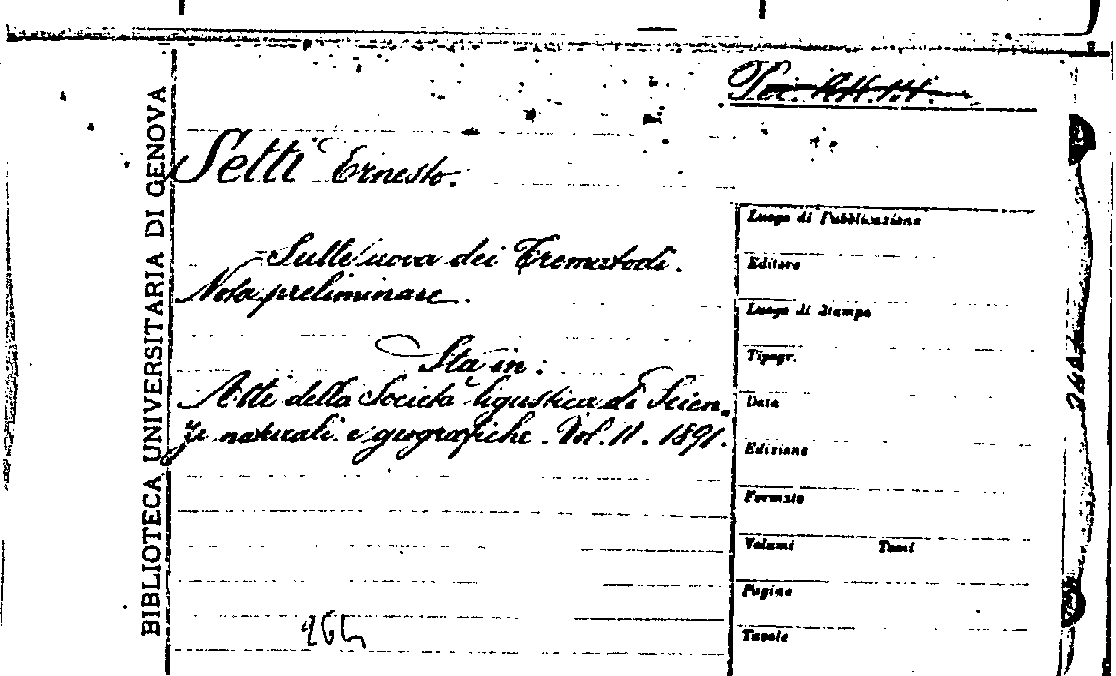 BIBLIOTECA UNIVERSITARIA DI GENOVA
Setti Ernesto.
Sulle uova dei Trematodi.
Nota preliminare.
Sta in:
Atti della Società ligustica di Scien,
ze naturali e geografiche. Vol. II. 1891.
Luogo di Pubblicazione
Editore
Luogo di Stampa
Tipogr.
Data
Edizione
Formato
Volumi Tomi
Pagine
Tavole